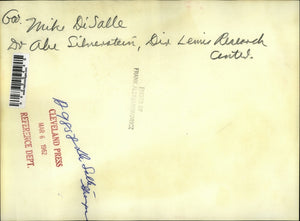 Gov. Mike DiSalle
Dr Abe Silverstein, Dir Lewis Research
Center.
PHOTO BY
FRANK ALEKSANDROWICZ
CLEVELAND PRESS
MAR 6 1962
REFERENCE DEPT.